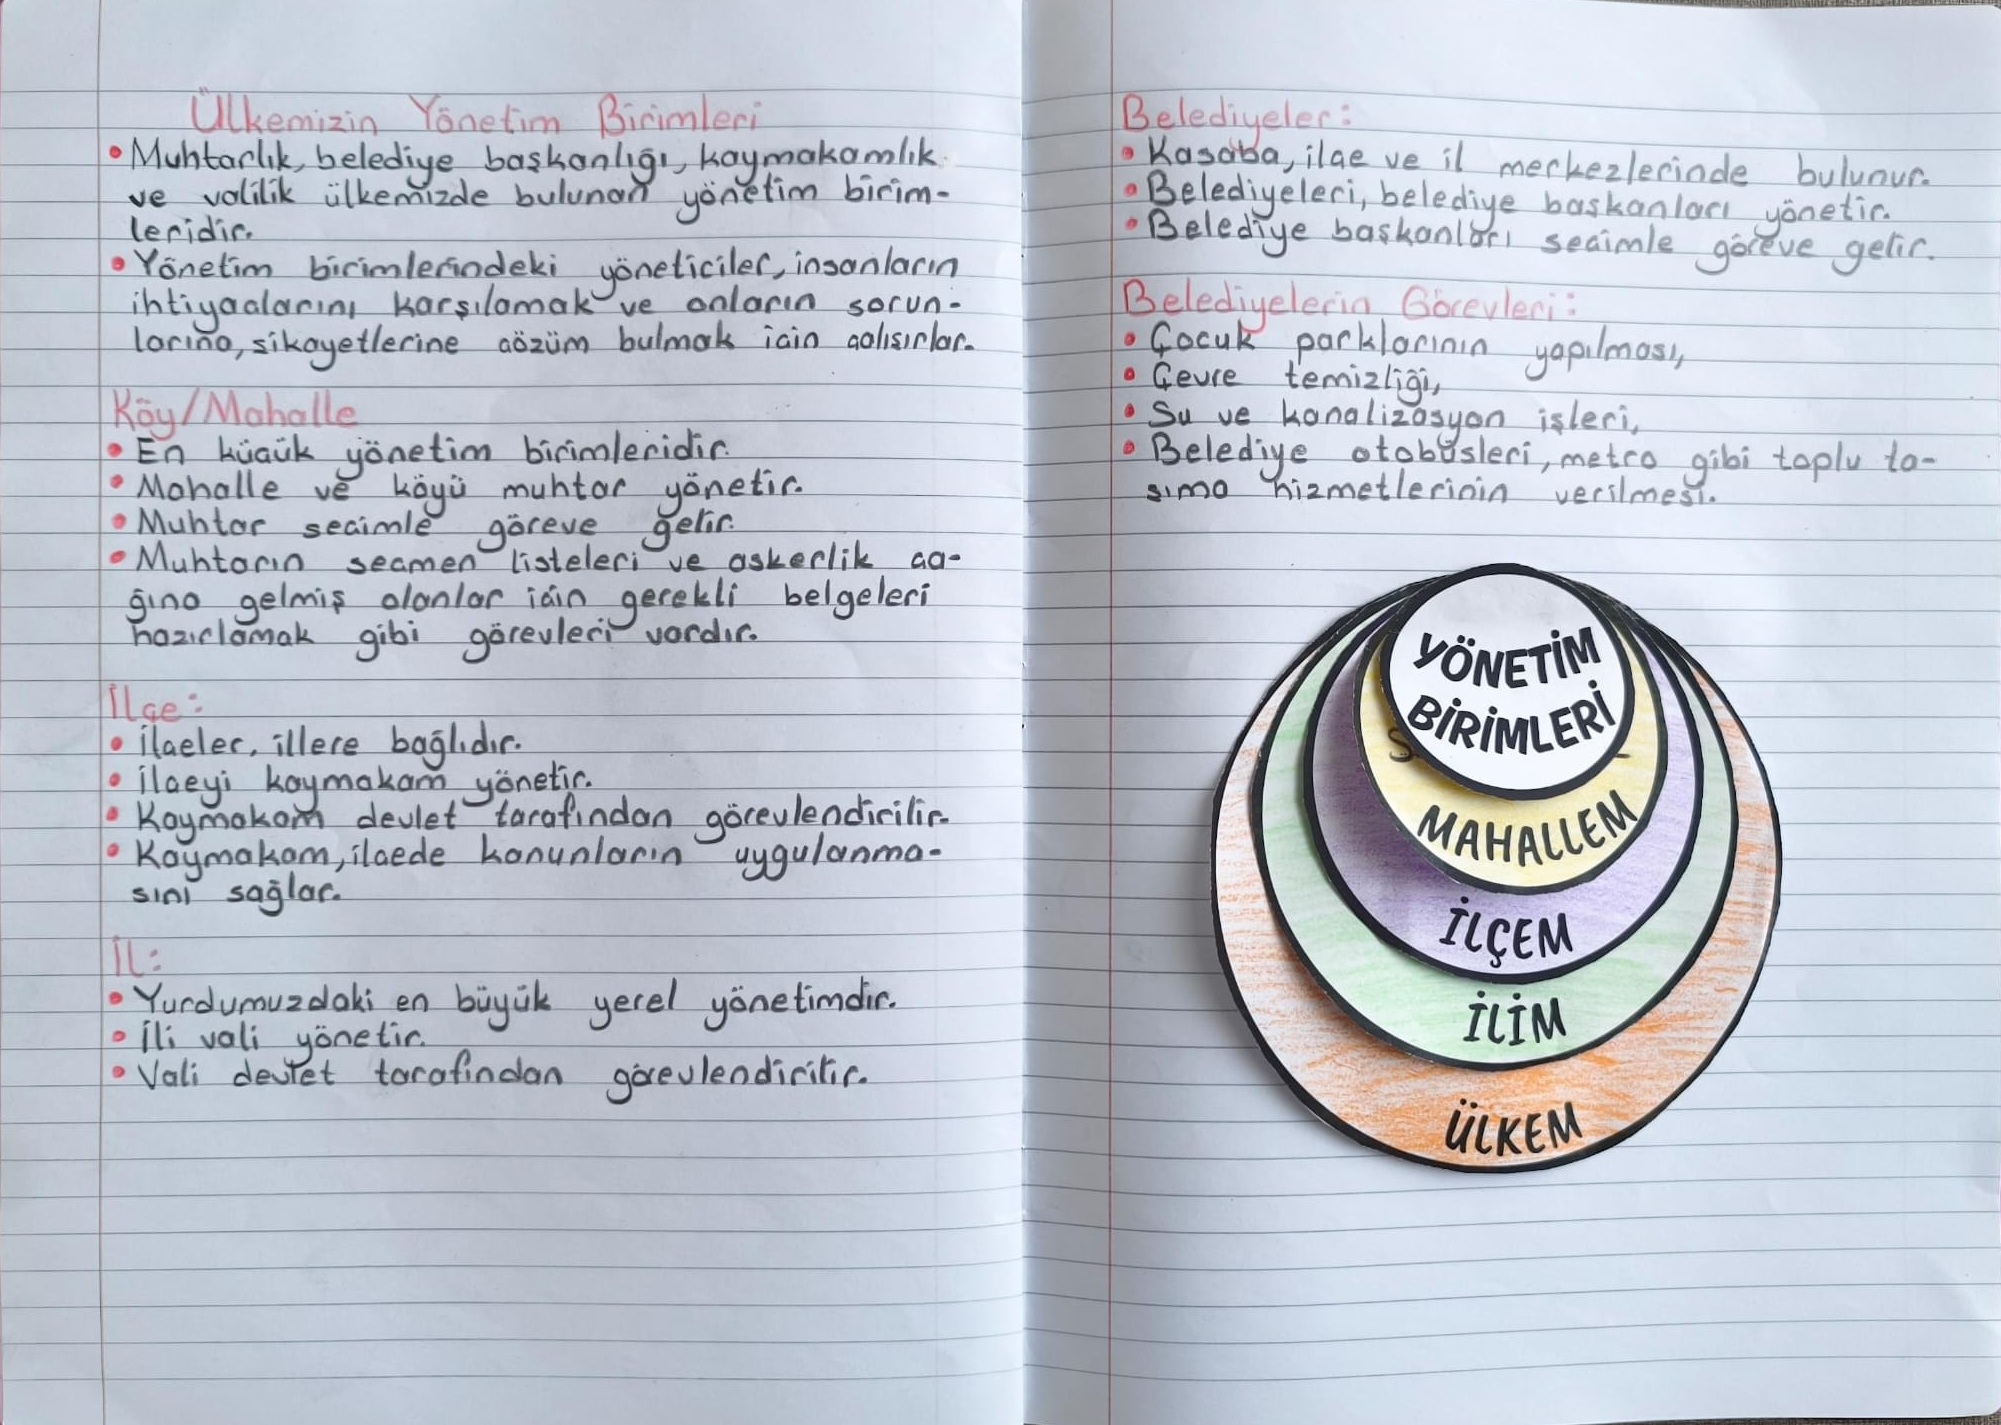 Ülkemizin Yönetim Birimleri
• Muhtarlık, belediye başkanlığı, kaymakamlık
ve valilik ülkemizde bulunan yönetim birim-
leridir.
• Yönetim birimlerindeki yöneticiler, insanların
ihtiyaçlarını karşılamak ve onların sorun-
larına, şikayetlerine çözüm bulmak için çalışırlar.
Köy/Mahalle
• En küçük yönetim birimleridir.
• Mahalle ve köyü muhtar yönetir.
• Muhtar seçimle göreve gelir.
• Muhtarın seçmen listeleri ve askerlik ça-
ğına gelmiş olanlar için gerekli belgeleri
hazırlamak gibi görevleri vardır.
İlçe:
• İlçeler, illere bağlıdır.
• İlçeyi kaymakam yönetir.
• Kaymakam devlet tarafından görevlendirilir.
• Kaymakam, ilçede kanunların uygulanma-
sını sağlar.
İl:
• Yurdumuzdaki en büyük yerel yönetimdir.
• İli vali yönetir.
• Vali devlet tarafından görevlendirilir.
Belediyeler:
• Kasaba, ilçe ve il merkezlerinde bulunur.
• Belediyeleri, belediye başkanları yönetir.
• Belediye başkanları seçimle göreve gelir.
Belediyelerin Görevleri:
• Çocuk parklarının yapılması,
• Çevre temizliği,
• Su ve kanalizasyon işleri,
• Belediye otobüsleri, metro gibi toplu ta-
şıma hizmetlerinin verilmesi.
YÖNETİM
BİRİMLERİ
MAHALLEM
İLÇEM
İLİM
ÜLKEM